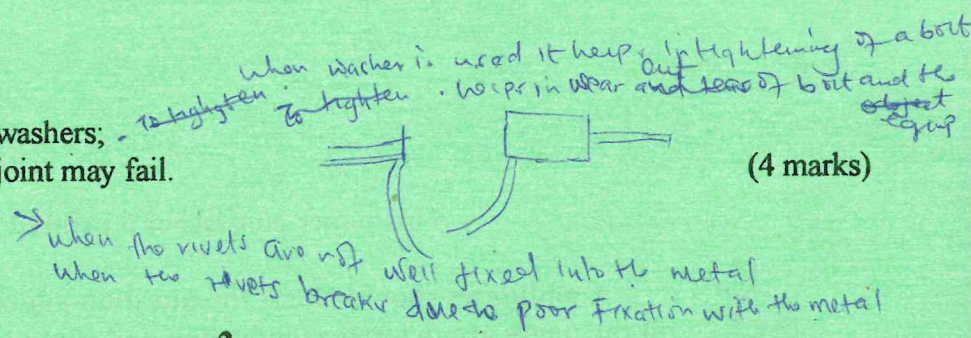 when washer is used it helps in tightening of a bolt
- to tighten to tighten . helps in wear out and tear of bolt and the
object
equip
washers;
joint may fail.
(4 marks)
> when the rivets are not well fixed into the metal
when the rivets breaks due to poor fixation with the metal